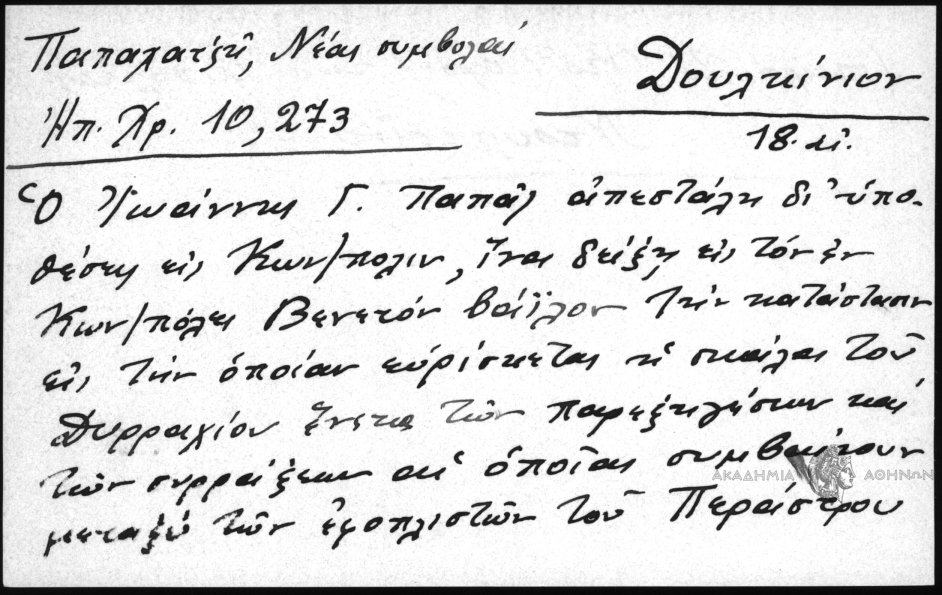 Παπαχατζῆ, Νέαι συμβολαί
Ἠπ. Χρ. 10, 273
Δουλτσίνιον
18. αἰ.
Ὁ Ἰωάννης Γ. Παπᾶς ἀπεστάλη δι' ὑπο-
θέσεις εἰς Κων/πολιν, ἵνα δείξῃ εἰς τόν ἐν
Κων/πόλει Βενετόν βάϊλον τήν κατάστασιν
εἰς τήν ὁποίαν εὑρίσκεται ἡ σκάλα τοῦ
Δυρραχίου ἕνεκα τῶν παρεξηγήσεων καί
τῶν συρράξεων αἱ ὁποῖαι συμβαίνουν
μεταξύ τῶν ἐφοπλιστῶν τοῦ Περάστρου
ΑΚΑΔΗΜΙΑ ΑΘΗΝΩΝ